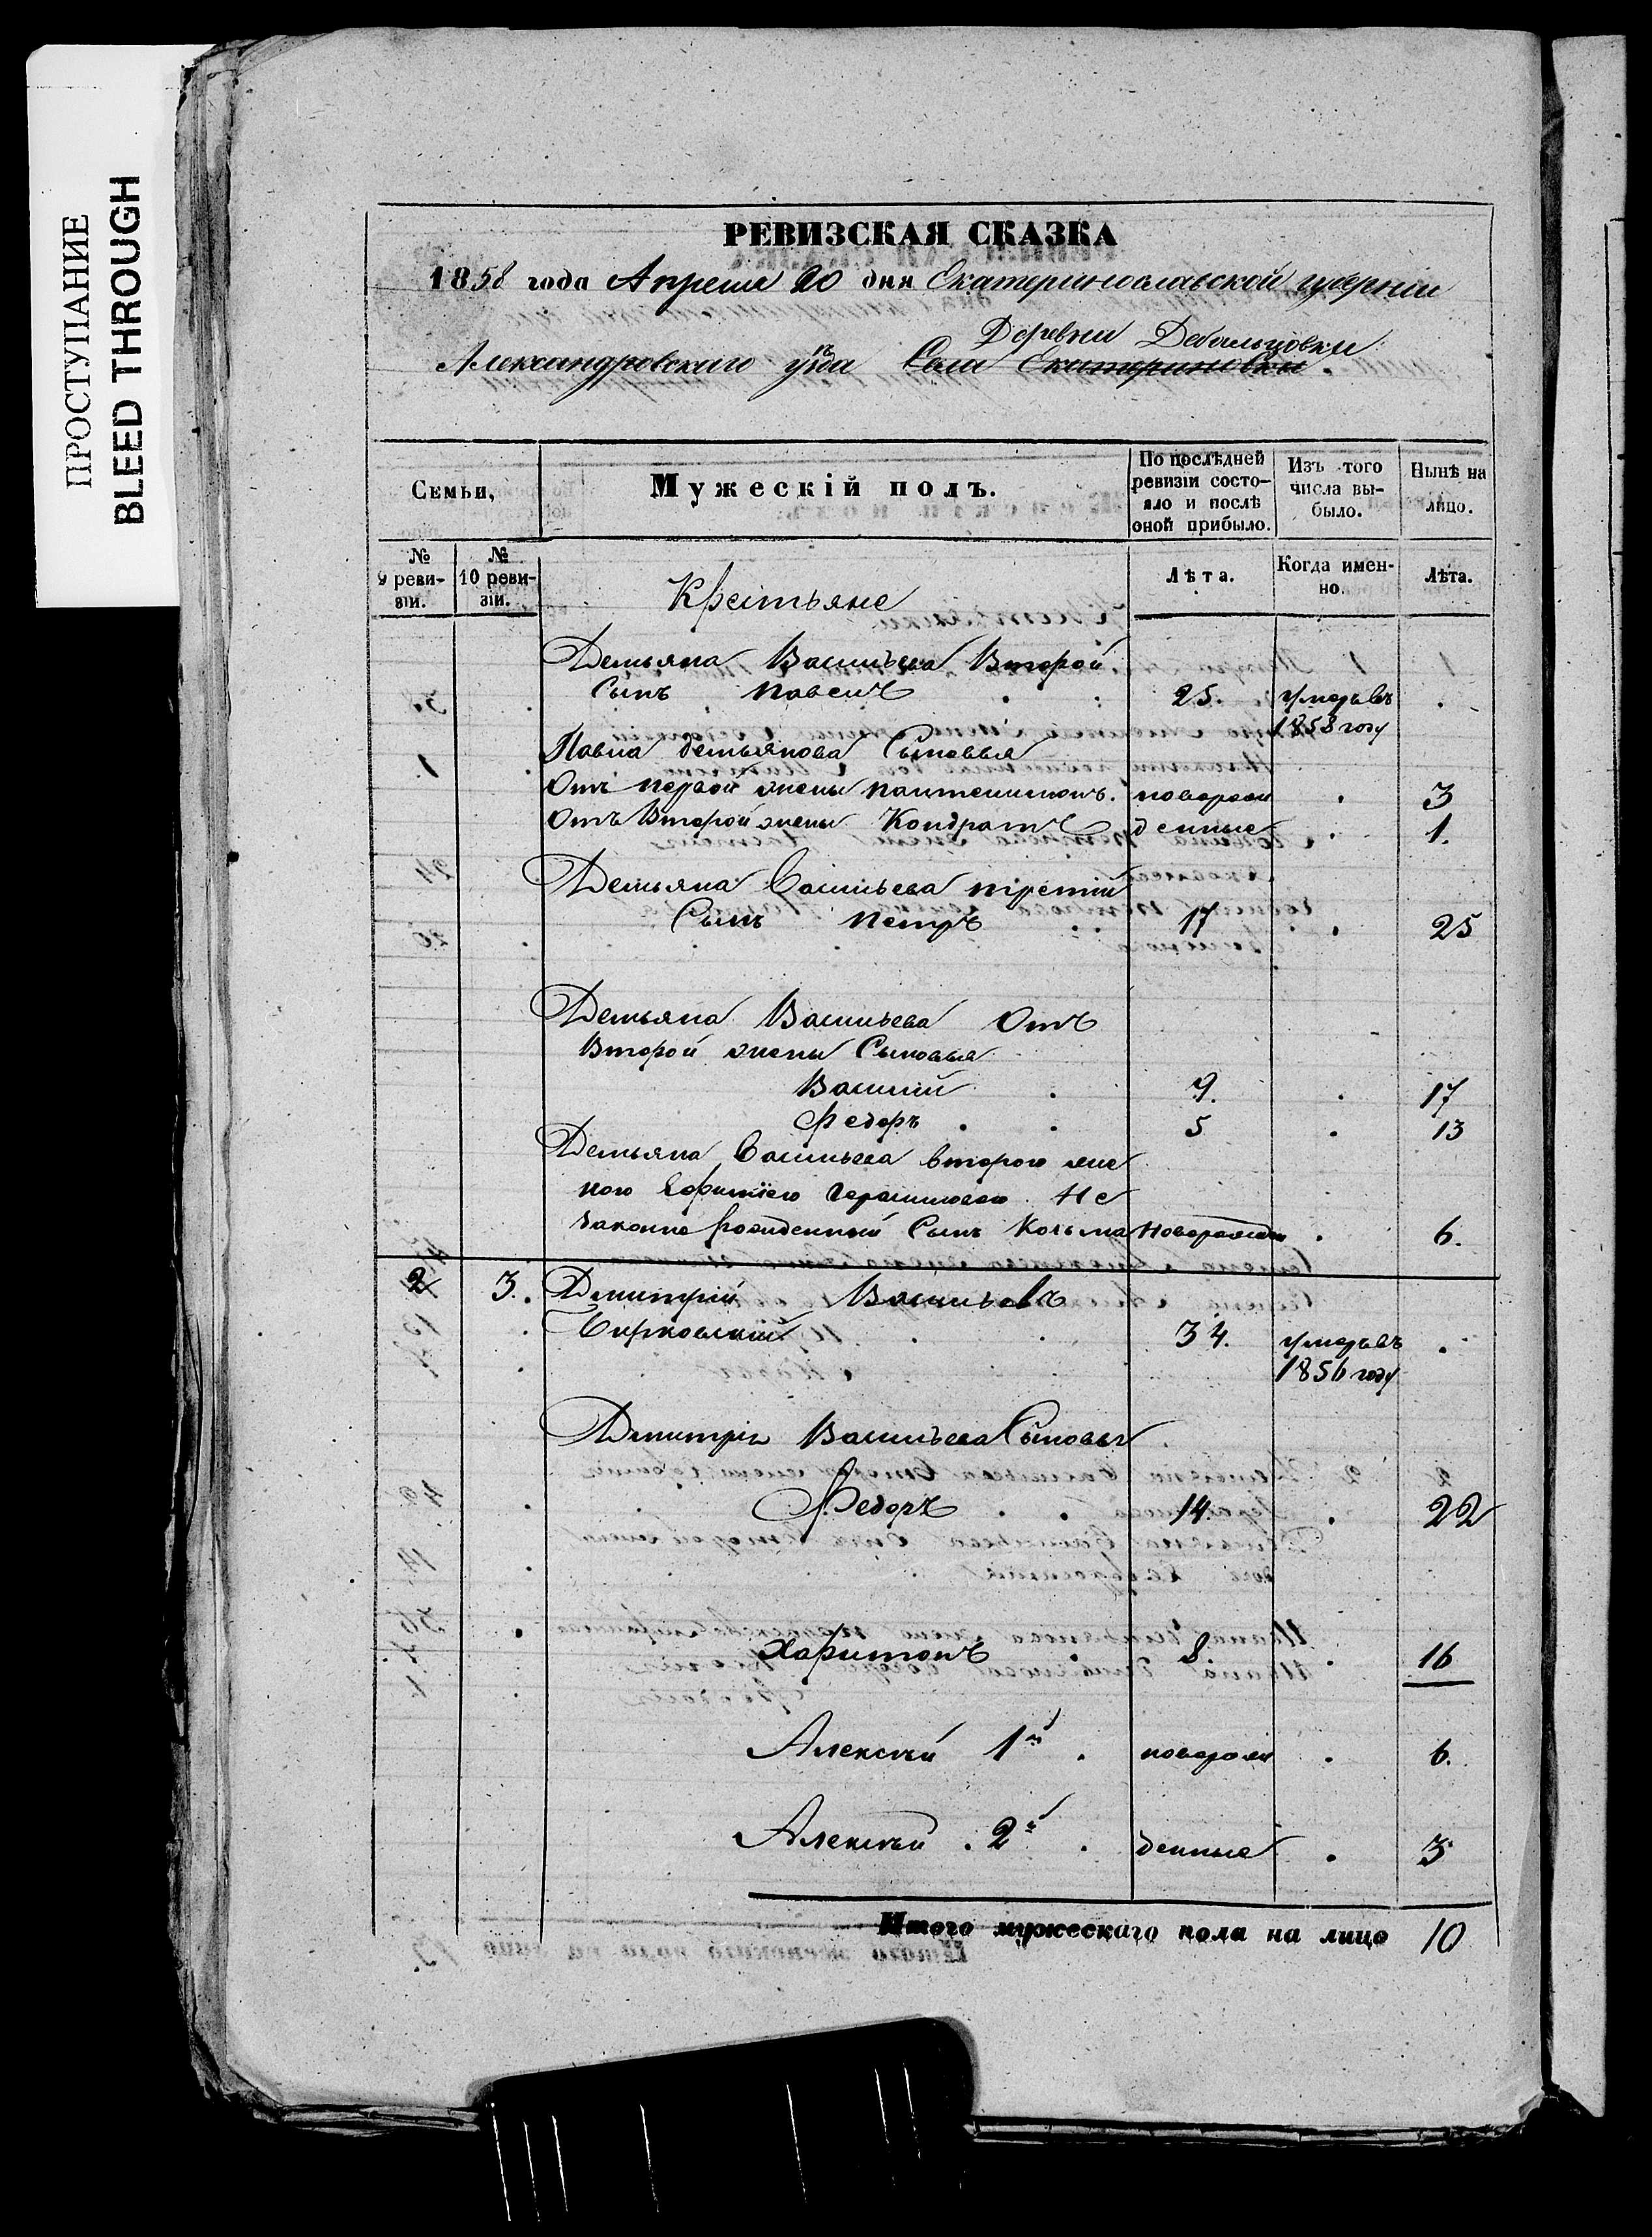 ПРОСТУПАНИЕ
BLEED THROUGH
РЕВИЗСКАЯ СКАЗКА
1858 года Апреля 20 дня Екатеринославской губернии
Деревни Дебальцовки
Александровского уѣзда Села Екатериновки
Семьи,
Мужескій полъ.
По послѣдней ревизіи состо-
яло и послѣ
оной прибыло.
Изъ того
числа вы-
было.
Нынѣ на
лицо.
№ 9 реви-
зіи.
№ 10 реви-
зіи.
Лѣта.
Когда имен-
но.
Лѣта.
Крестьяне
Демьяна Васильева Второй
Сынъ Павелъ 25. умеръ въ
1853 году
Павла Демьянова Сыновья
Отъ первой жены Пантелимонъ. новорож 3
Отъ Второй жены Кондратъ денные 1.
Демьяна Васильева третій
Сынъ Петръ 17 25
Демьяна Васильева Отъ
Второй жены Сыновья
Василий 9. 17
Федоръ 5 13
Демьяна Васильева второго
Не
законно рожденный Сынъ Козьма Новорожден 6.
2 3. Дмитрій Васильевъ
34. умеръ въ
1856 году
Дмитрія Васильева Сыновья
Федоръ 14. 22
Харитонъ 8. 16
Алексѣй 1й новорож 6.
Алексѣй 2й денные 3
Итого мужескаго пола на лицо 10